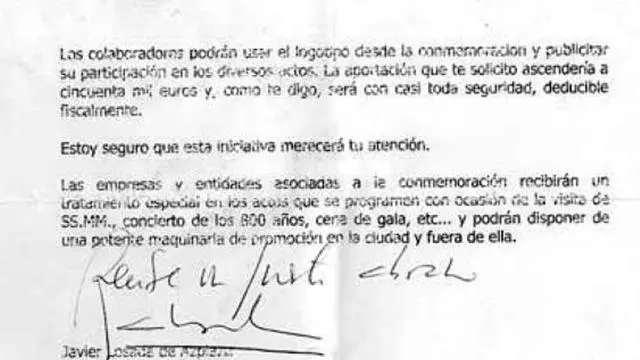 Los colaboradores podrán usar el logotipo desde la conmemoración y publicitar
su participación en los diversos actos. La aportación que te solicito ascendería a
cincuenta mil euros y, como te digo, será con casi toda seguridad, deducible
fiscalmente.
Estoy seguro que esta iniciativa merecerá tu atención.
Las empresas y entidades asociadas a la conmemoración recibirán un
tratamiento especial en los actos que se programen con ocasión de la visita de
SS.MM., concierto de los 800 años, cena de gala, etc... y podrán disponer de
una potente maquinaria de promoción en la ciudad y fuera de ella.
Recibe un fuerte abrazo
Javier Losada de Azpiazu